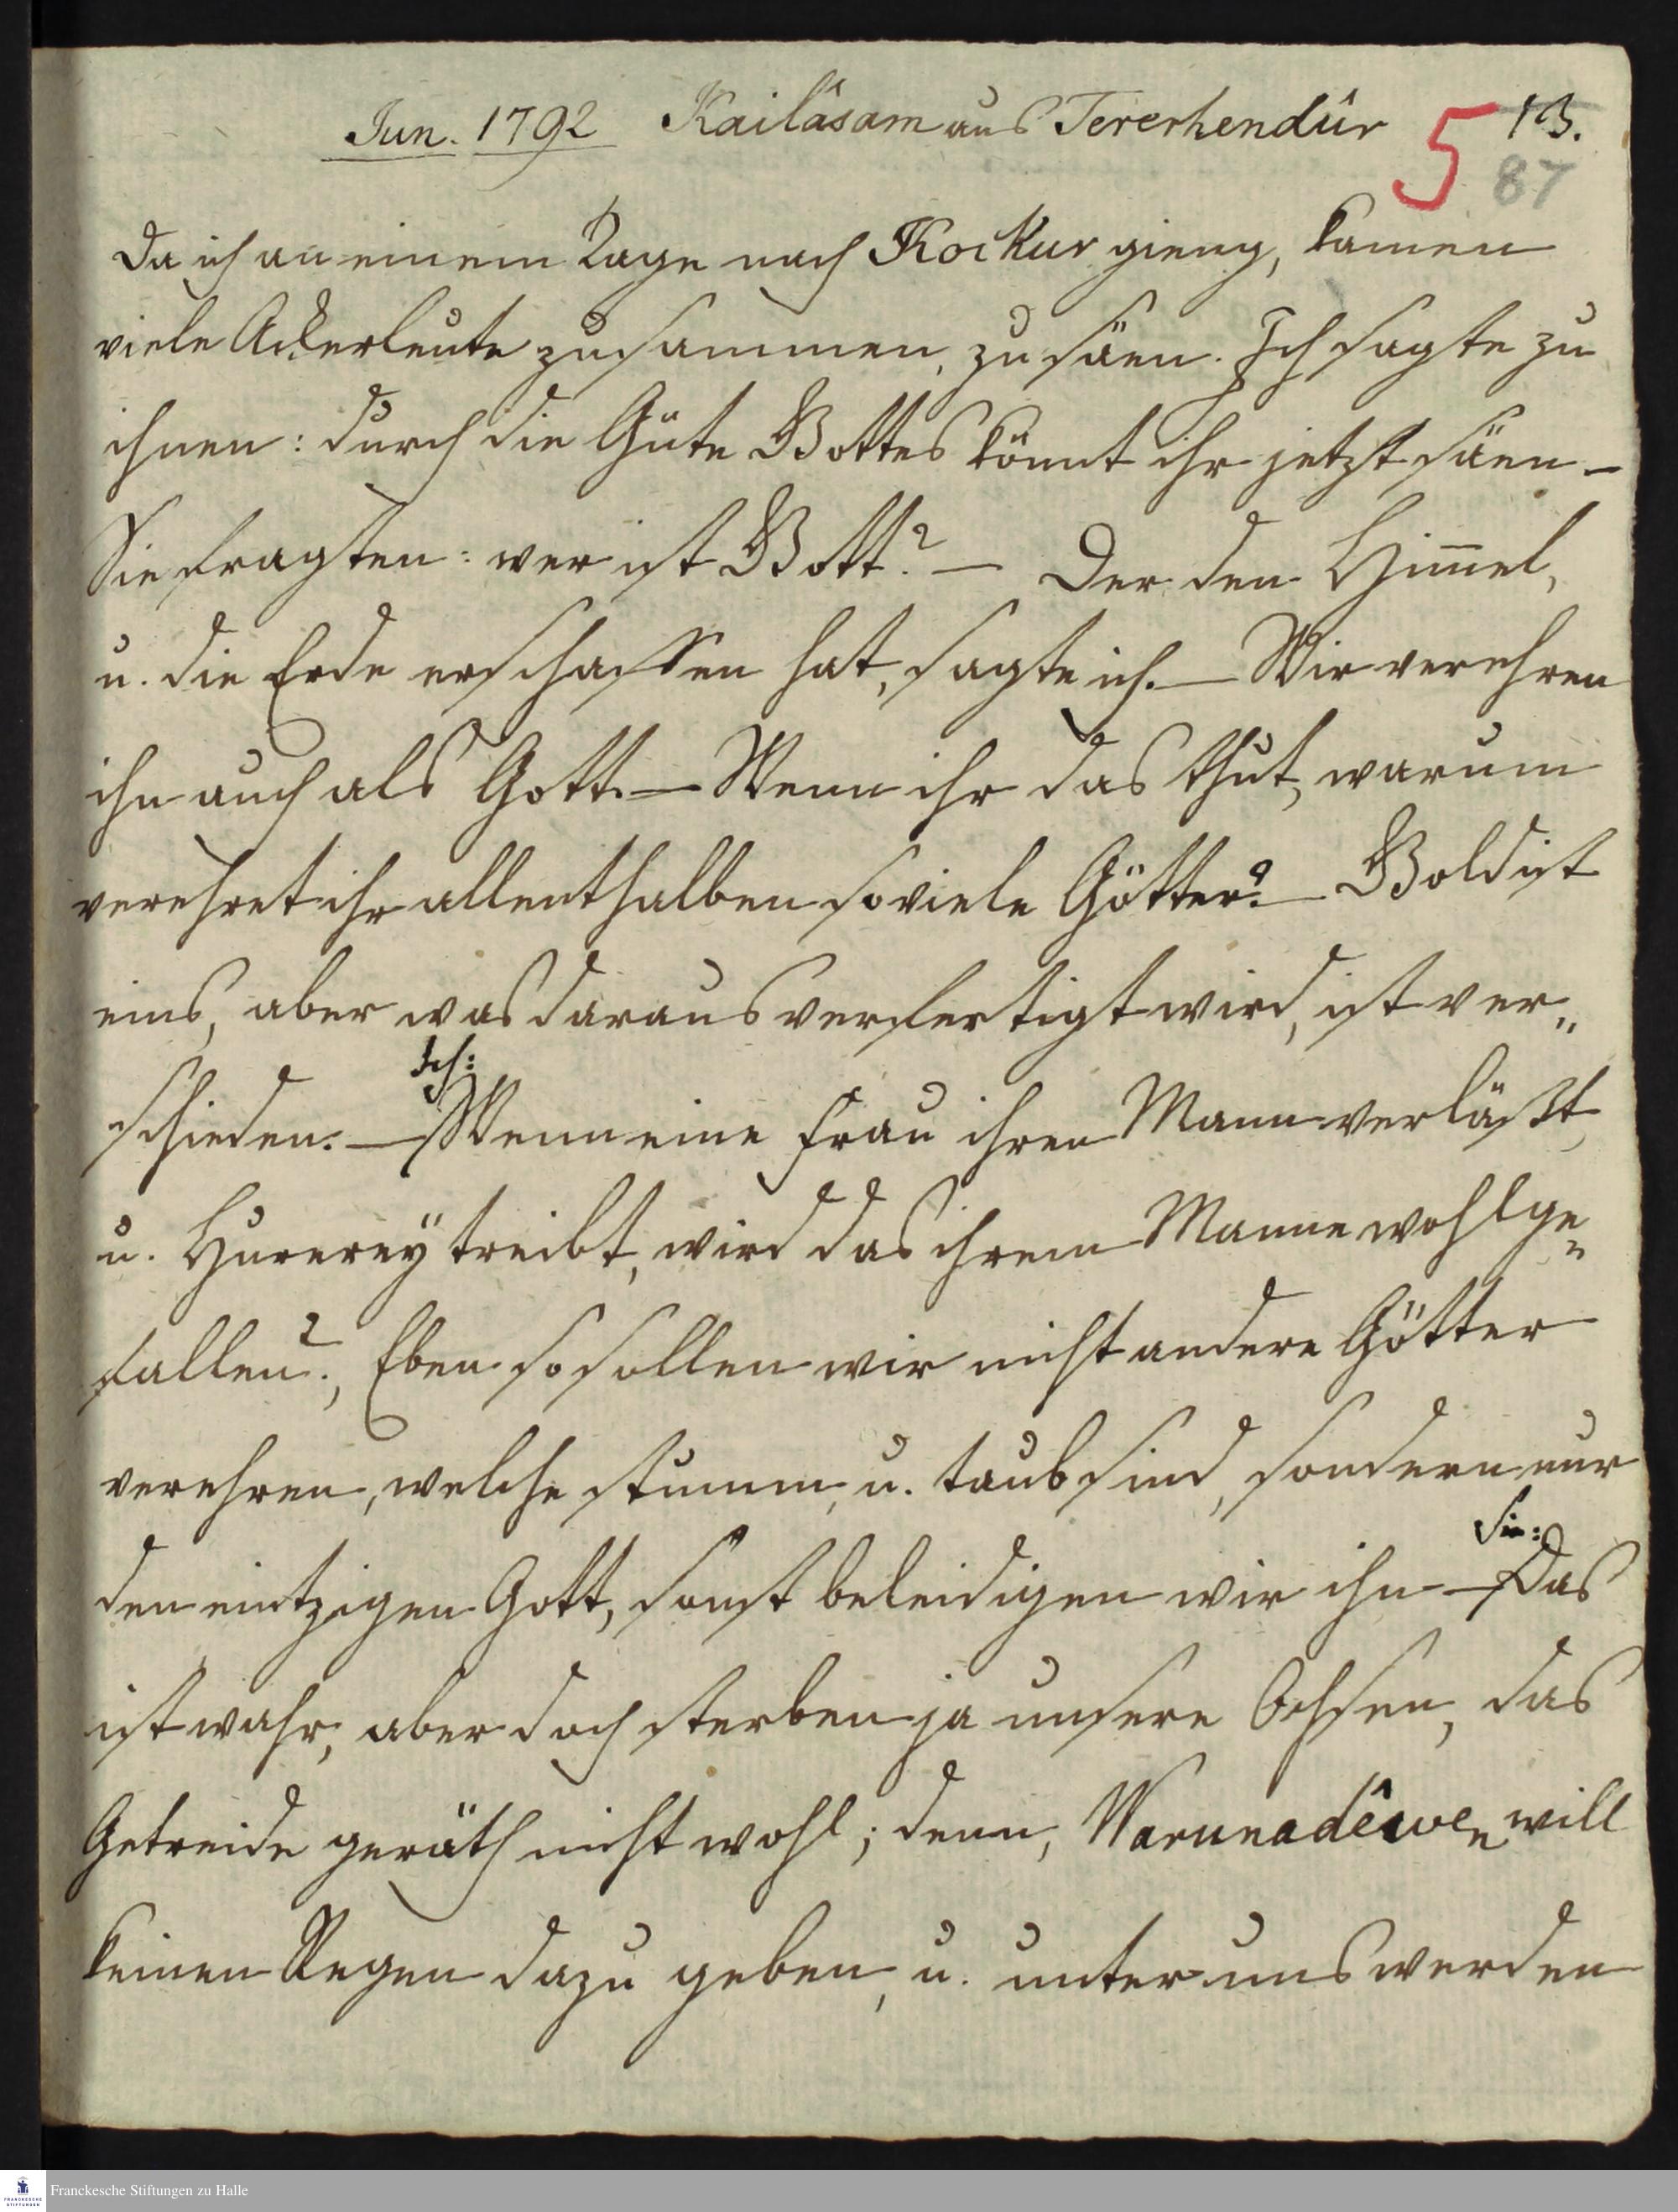 Jun. 1792 Kailâsam aus Tererhendûr 5 13.
87
Da ich an einem Tage nach Kockur gieng, kamen
viele Ackerleute zusammen, zu säen. Ich sagte zu
ihnen: durch die Güte Gottes könnt ihr jetzt säen –
Sie fragten: wer ist Gott? – Der den Him̅el,
u. die Erde erschaffen hat, sagte ich. – Wir verehren
ihn auch als Gott. – Wenn ihr das thut, warum
verehret ihr allenthalben so viele Götter? – Gold ist
eins, aber was daraus verfertigt wird, ist ver„
Ich:
schieden. – Wenn eine Frau ihren Mann verläßt,
u. Hurerey treibt, wird das ihrem Manne wohlge„
fallen?, Eben so sollen wir nicht andere Götter
verehren, welche stumm, u. taub sind, sondern nur
Sie:
den eintzigen Gott, sonst beleidigen wir ihn – Das
ist wahr, aber doch sterben ja unsere Ochsen, das
Getreide geräth nicht wohl; denn, Warunadêwen will
keinen Regen dazu geben, u. unter uns werden
Franckesche Stiftungen zu Halle
FRANCKESCHE STIFTUNGEN